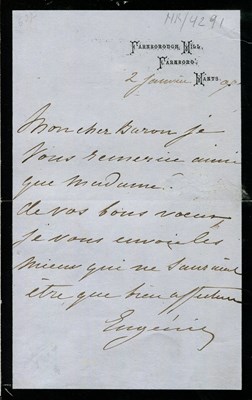 MR/4291
FARNBOROUGH HILL,
FARNBORO'.
HANTS.
2 Janvier 9
Mon cher Baron je
Vous remercie ainsi
que Madame
de vos bons voeux,
je vous envoie les
miens qui ne sauraient
être que bien affectueux
Eugénie